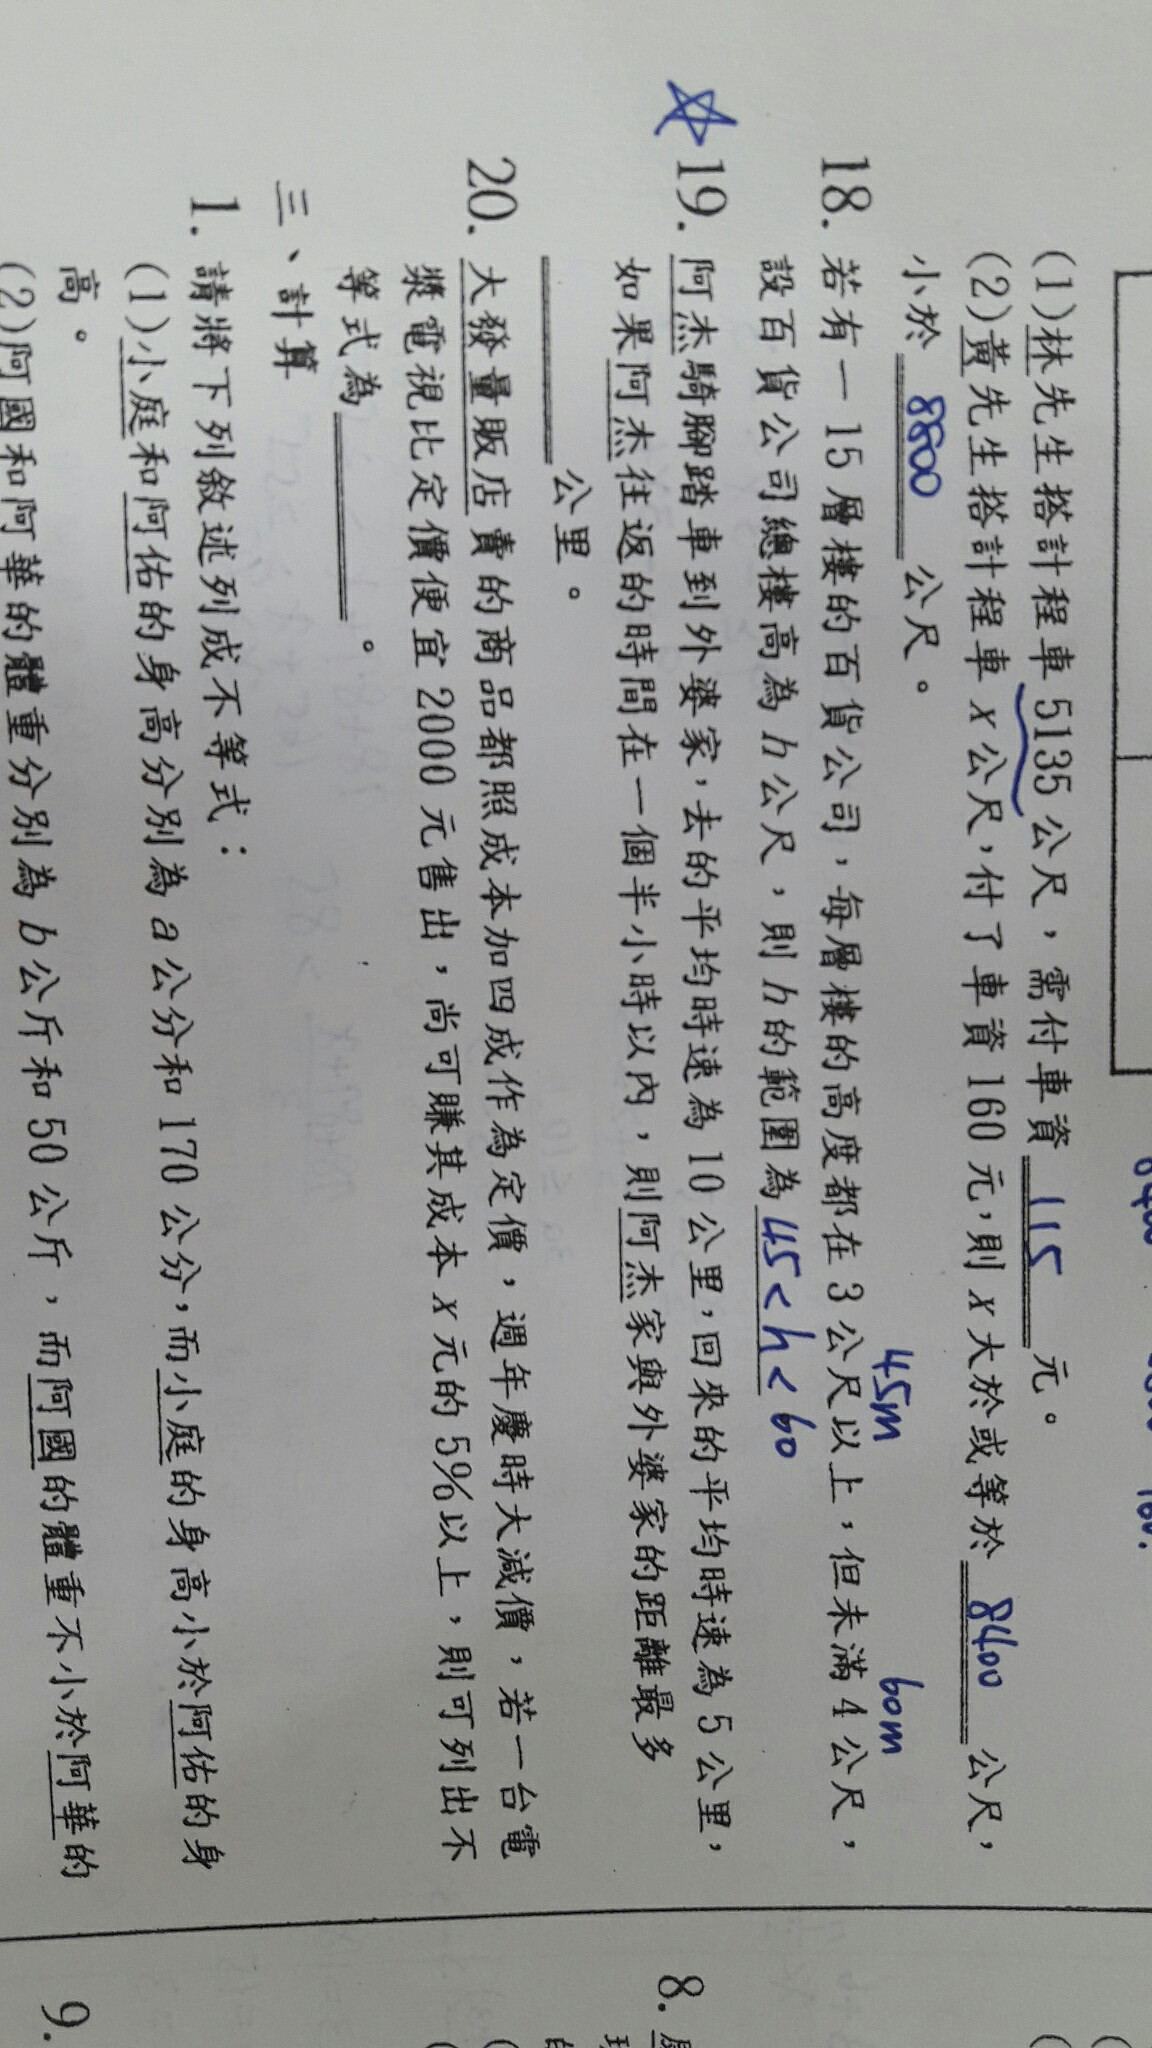 (1)林先生搭計程車5135公尺，需付車資 115 元。
(2)黃先生搭計程車x公尺，付了車資160元，則x大於或等於 8400 公尺，
小於 8800 公尺。
45m 60m
18. 若有一15層樓的百貨公司，每層樓的高度都在3公尺以上，但未滿4公尺，
設百貨公司總樓高為h公尺，則h的範圍為 45<h<60
19. 阿杰騎腳踏車到外婆家，去的平均時速為10公里，回來的平均時速為5公里，
如果阿杰往返的時間在一個半小時以內，則阿杰家與外婆家的距離最多
公里。
20. 大發量販店賣的商品都照成本加四成作為定價，週年慶時大減價，若一台電
將電視比定價便宜2000元售出，尚可賺其成本x元的5%以上，則可列出不
等式為 。
三、計算
1. 請將下列敘述列成不等式：
(1)小庭和阿佑的身高分別為a公分和170公分，而小庭的身高小於阿佑的身
高。
(2)阿國和阿華的體重分別為b公斤和50公斤，而阿國的體重不小於阿華的
8.
9.